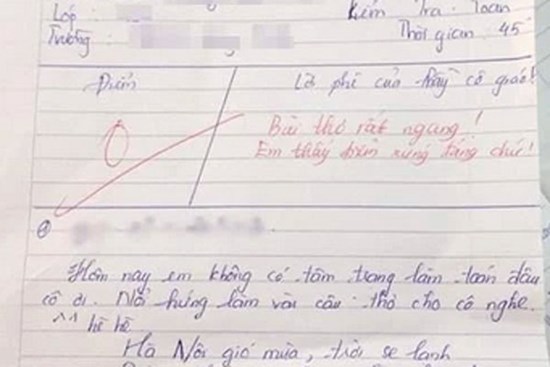 Lớp :
Trường :
Kiểm Tra : Toán
Thời gian : 45'
Điểm
Lời phê của thầy cô giáo!
0
Bài thơ rất ngang!
Em thấy điểm xứng đáng chứ!
Hôm nay em không có tâm trạng làm toán đâu
cô ơi. Nổi hứng làm vài câu thơ cho cô nghe.
^^ hề hề
Hà Nội gió mùa, trời se lạnh